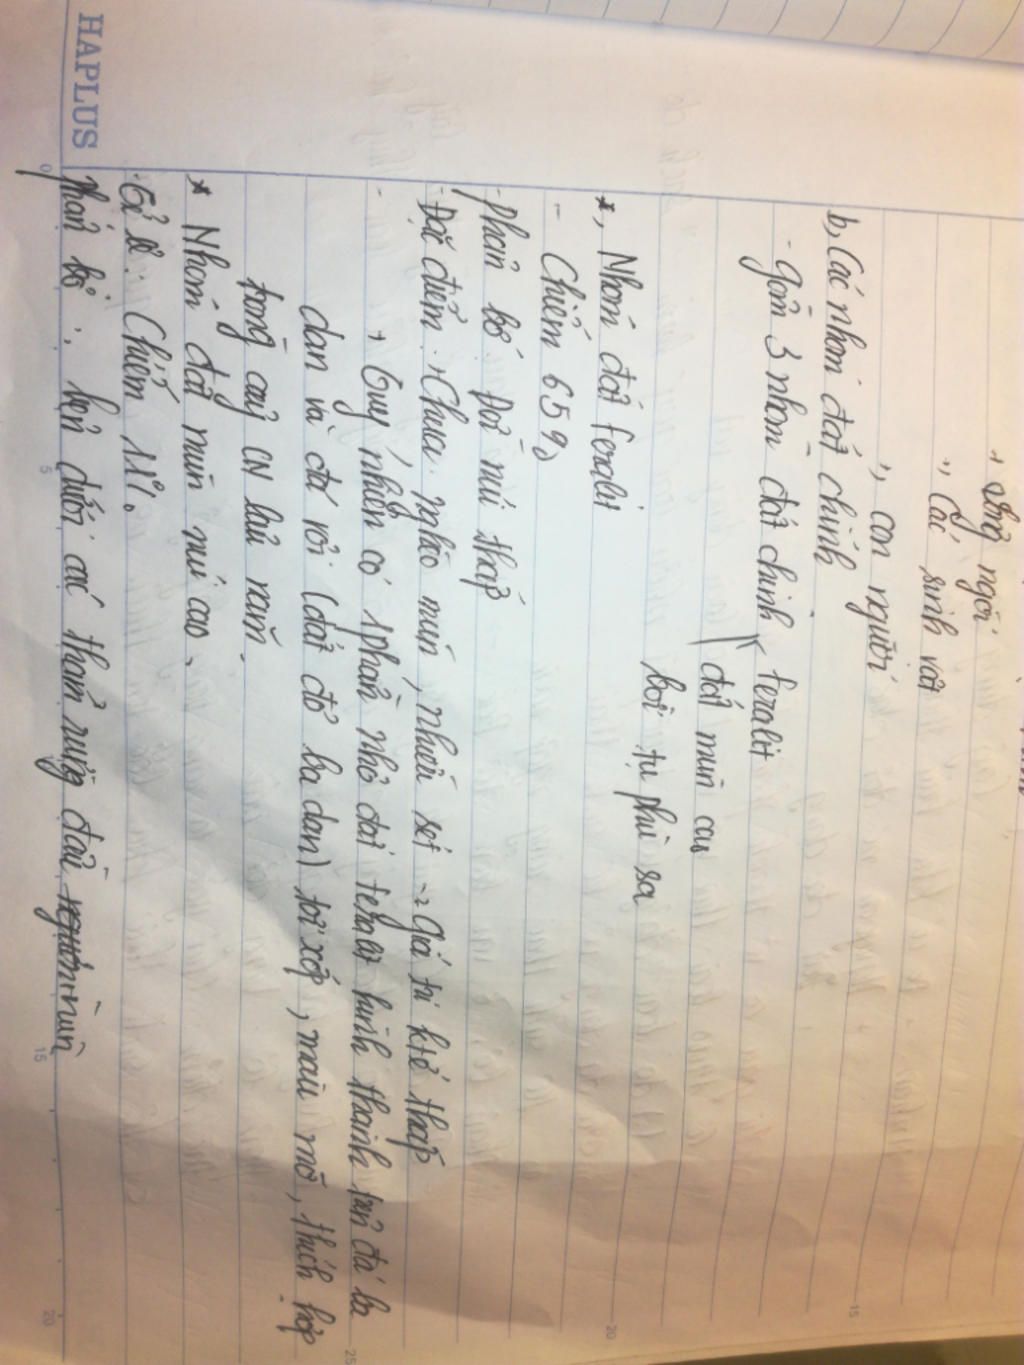 +, động ngòi
+, Các sinh vật
+, con người
b, Các nhóm đất chính
- gồm 3 nhóm đất chính feralit
đất mùn cau
bồi tụ phù sa
*, Nhóm đất feralit
- Chiếm 65%
- Phân bố: Đồi núi thấp
- Đặc điểm: + Chua, nghèo mùn, nhiều sét -> Giá trị ktế thấp
+ Tuy nhiên có 1 phần nhỏ đất feralit hình thành trên đá ba
dan và đá vôi (đất đỏ ba dan) tơi xốp, màu mỡ, thích hợp
trồng cây CN lâu năm.
* Nhóm đất mùn núi cao.
- Tỉ lệ: Chiếm 11%.
Phân bố: bên dưới các thảm rừng đầu
HAPLUS
0 5 15 20
15
20
25